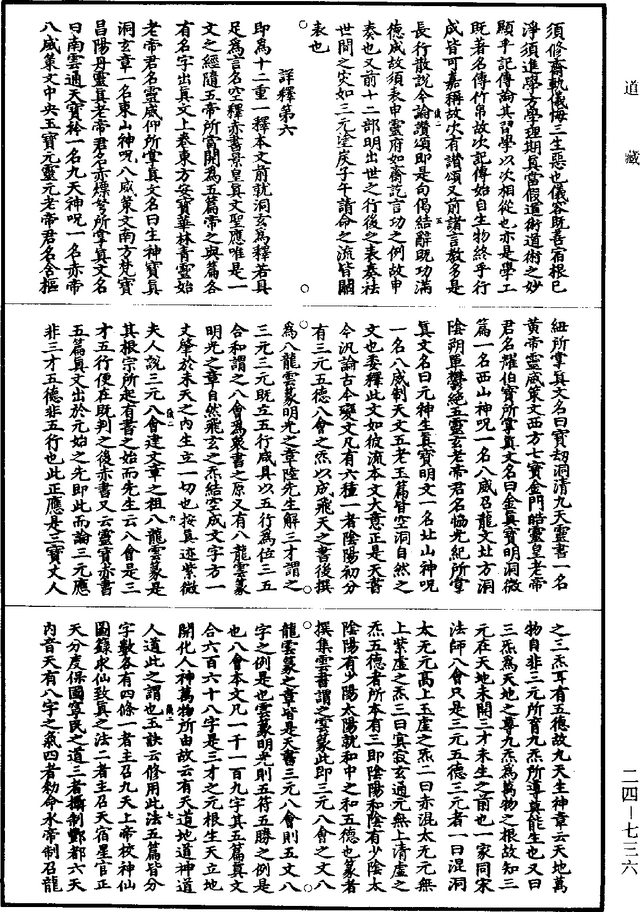 道藏
須修齋軌儀悔三生惡也儀容既善宿根已
淨須進學方學理期真當假道術道術之妙
顯乎記傳論其習學以次相從也亦是學工
既著名傳竹帛故次記傳始自生物終乎行
成皆可嘉稱故次有讚頌又前諸言教多是
長行散說今論讚頌即是句偈結辭既功滿
德成故須表申靈府如齋訖言功之例故申
奏也又前十二部明出世之行後之表奏祛
世間之災如三元塗炭子午請命之流皆關
表也
詳釋第六
即為十二重一釋本文前就洞玄為釋若具
足為言名空釋赤書景皇真文聖應唯是一
文之經隨五帝所當開為五篇帝之與篇各
有名字出真文上卷東方安寶華林青靈始
老帝君名靈威仰所掌真文名曰生神寶真
洞玄章一名東山神呪八威策文南方梵寶
昌陽丹靈真老帝君名赤熛弩所掌真文名
曰南雲通天寶一名九天神呪一名赤帝
八威策文中央玉寶元靈元老帝君名含樞
紐所掌真文名曰寶劫洞清九天靈書一名
黃帝靈威策文西方七寶金門皓靈皇老帝
君名耀伯寶所掌真文名曰金真寶明洞微
篇一名西山神呪一名八威召龍文北方洞
陰朔單鬱絕五靈玄老帝君名協光紀所掌
真文名曰元神生真寶明文一名北山神呪
一名八威制天文五老玉篇皆空洞自然之
文也委釋此文如彼流本文大意正是天書
今汎論古今變文凡有六種一者陰陽初分
有三元五德八會之炁以成飛天之書後撰
為八龍雲篆明光之章陸先生解三才謂之
三元三元既立五行咸具以五行為位三五
合和謂之八會為衆書之原又有八龍雲篆
明光之章自然飛玄之炁結空成文字方一
丈肇於未天之内生立一切也按真迹紫微
夫人說三元八會建文章之祖八龍雲篆是
其根宗所起有書之始而先生云八會是三
才五行便在既判之後赤書又云靈寶赤書
五篇真文出於元始之先即此而論三元應
非三才五德非五行也此正應是三寶丈人
之三炁耳有五德故九天生神章云天地萬
物自非三元所育九炁所導莫能生也又曰
三炁為天地之尊九炁為萬物之根故知三
元在天地未開三才未生之前也一家同宋
法師八會只是三元五德三元者一曰混洞
太无元高上玉虛之炁二曰赤混太无元無
上紫虛之炁三曰冥寂玄通元無上清虛之
炁五德者所本有三即陰陽和陰有少陰太
陰陽有少陽太陽就和中之和五德也篆者
撰集雲書謂之雲篆此即三元八會之文八
龍雲篆之章皆是天書三元八會則五文八
字之例是也雲篆明光則五符五勝之例是
也八會本文凡一千一百九字其五篇真文
合六百六十八字是三才之元根生天立地
開化人神萬物所由故云有天道地道神道
人道此之謂也五訣云修用此法五篇皆分
字數各有四條一者主召九天上帝校神仙
圖籙求仙致真之法二者主召天宿星官正
天分度保國寧民之道三者攝制酆都六天
内音天有八字之氣四者勑命水帝制召龍
二四—七三六